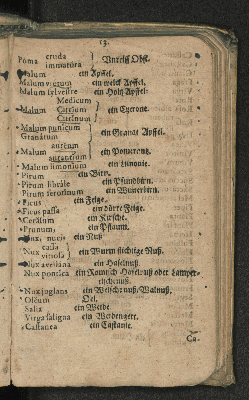 13.
Poma cruda immatura } Unreiff Obs.
Malum ein Apffel.
Malum vietum ein welck Apffel.
Malum sylvestre ein Holtz Apffel.
Medicum
Malum Citrium } ein Citrone.
Citrinum
Malum punicum
Granatum } ein Granat Apffel.
aureum
Malum } ein Pomerantz.
aurantium
Malum limonium ein Limonie.
Pirum ein Birn.
Pirum librale ein Pfundbirn.
Ficus ein Feige.
Ficus passa ein dürre Feige.
Cerasum ein Kirsche.
Prunum, ein Pflaum.
Nux, nucis ein Nuß
cassa
Nux } ein Wurmstichtige Nuß.
Nux avellana ein Haselnuß.
Nux pontica ein Römisch Haselnuß oder Lamper-
tischnuß.
Nux juglans ein Welschenuß, Walnuß.
Oleum Oel.
Salix ein Weide
Virga saligna ein Weidengert.
Castanea ein Castanie.
Ca-